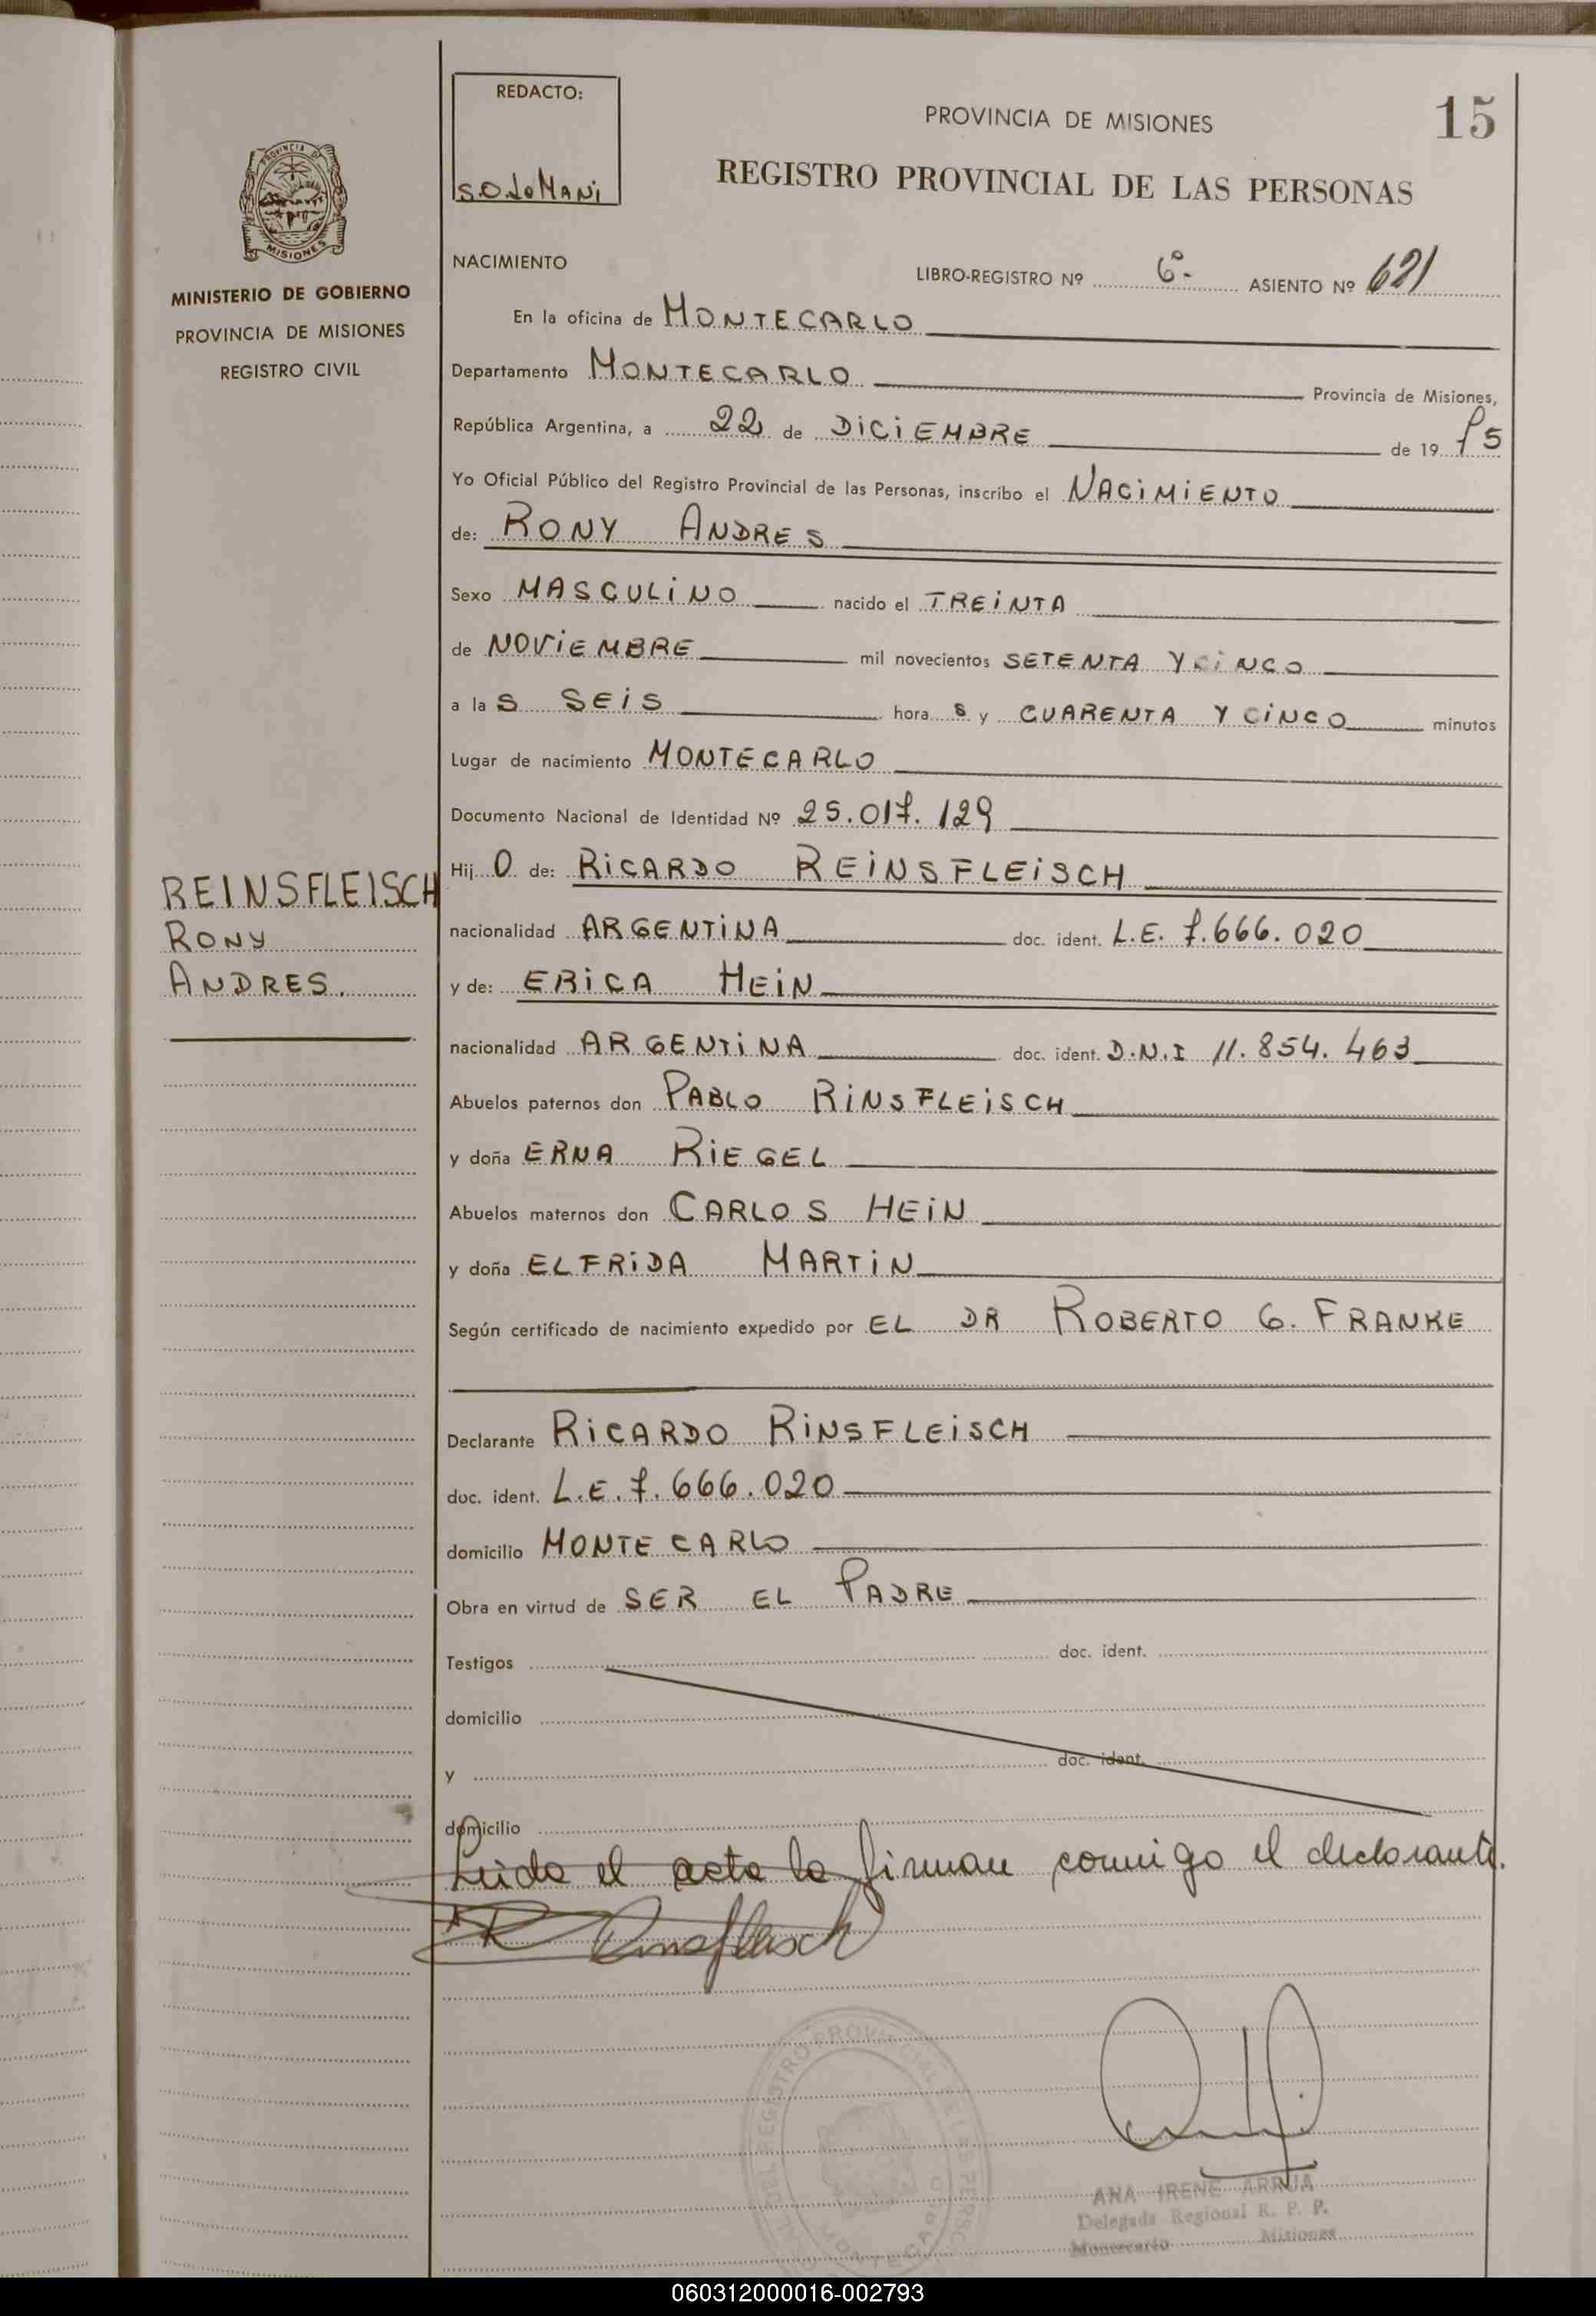 REDACTO:
PROVINCIA DE MISIONES
15
REGISTRO PROVINCIAL DE LAS PERSONAS
PROVINCIA DE
MISIONES
MINISTERIO DE GOBIERNO
PROVINCIA DE MISIONES
REGISTRO CIVIL
NACIMIENTO
LIBRO-REGISTRO Nº 6º- ASIENTO Nº 621
En la oficina de MONTECARLO
Departamento MONTECARLO Provincia de Misiones,
República Argentina, a 22 de DICIEMBRE de 19 75
Yo Oficial Público del Registro Provincial de las Personas, inscribo el NACIMIENTO
de: RONY ANDRES
Sexo MASCULINO nacido el TREINTA
de NOVIEMBRE mil novecientos SETENTA Y CINCO
a la S SEIS hora s y CUARENTA Y CINCO minutos
Lugar de nacimiento MONTECARLO
Documento Nacional de Identidad Nº 25.017.129
Hij O de: RICARDO REINSFLEISCH
REINSFLEISCH
RONY
ANDRES.
nacionalidad ARGENTINA doc. ident. L.E. 7.666.020
y de: ERICA HEIN
nacionalidad ARGENTINA doc. ident. D.N.I 11.854.463
Abuelos paternos don PABLO RINSFLEISCH
y doña ERNA RIEGEL
Abuelos maternos don CARLOS HEIN
y doña ELFRIDA MARTIN
Según certificado de nacimiento expedido por EL DR ROBERTO G. FRANKE
Declarante RICARDO RINSFLEISCH
doc. ident. L.E. 7.666.020
domicilio MONTE CARLO
Obra en virtud de SER EL PADRE
Testigos doc. ident.
domicilio
y doc. ident.
domicilio
Leida el acta la firman conmigo el declarante.
R Rinsfleisch
ANA IRENE ARRUA
Delegada Regional R. P. P.
Montecarlo Misiones
060312000016-002793